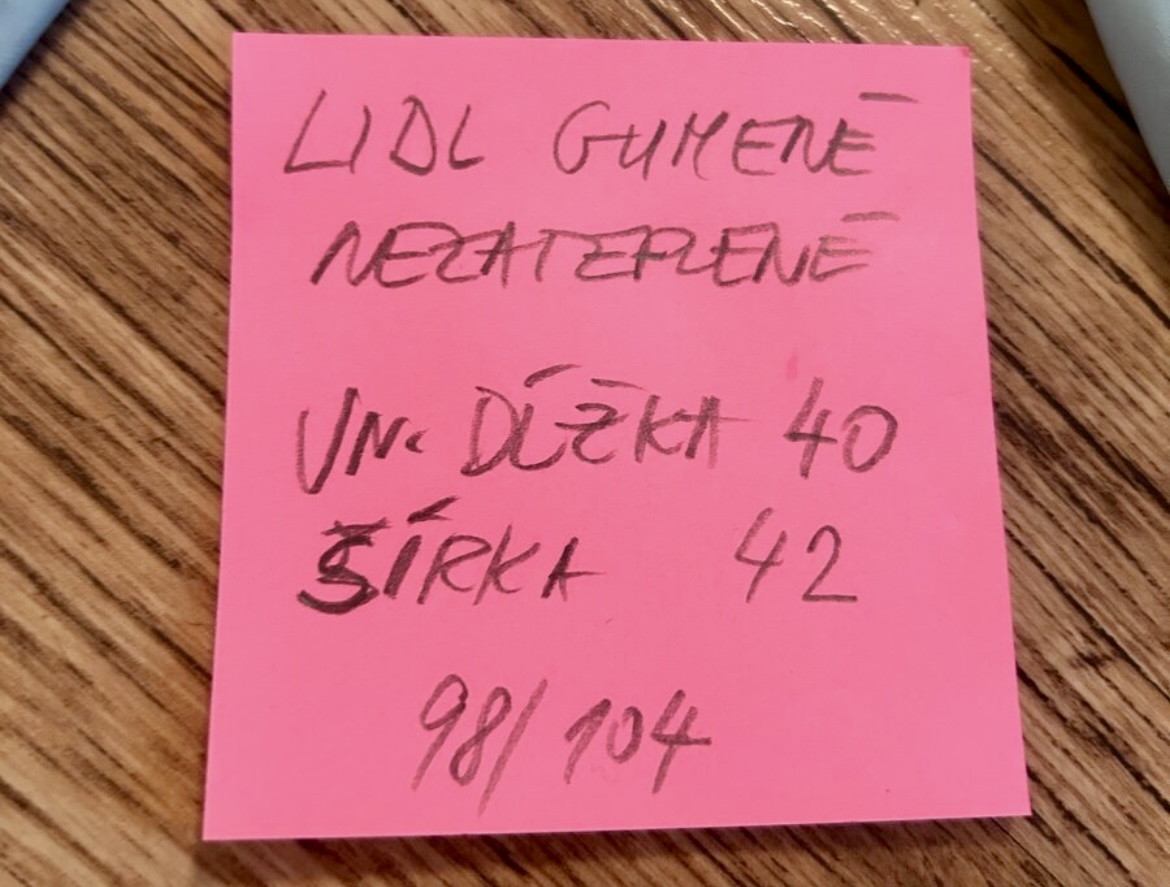 LIDL GUMENÉ
NEZATEPLENÉ
VN. DĹŽKA 40
ŠÍRKA 42
98/104